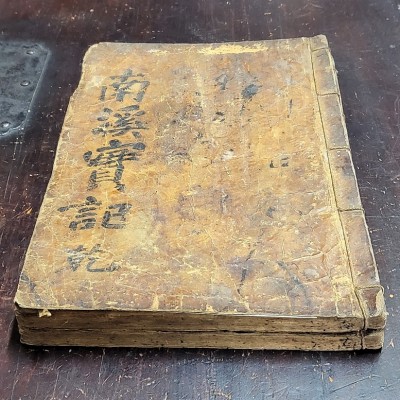 南溪寶記 乾